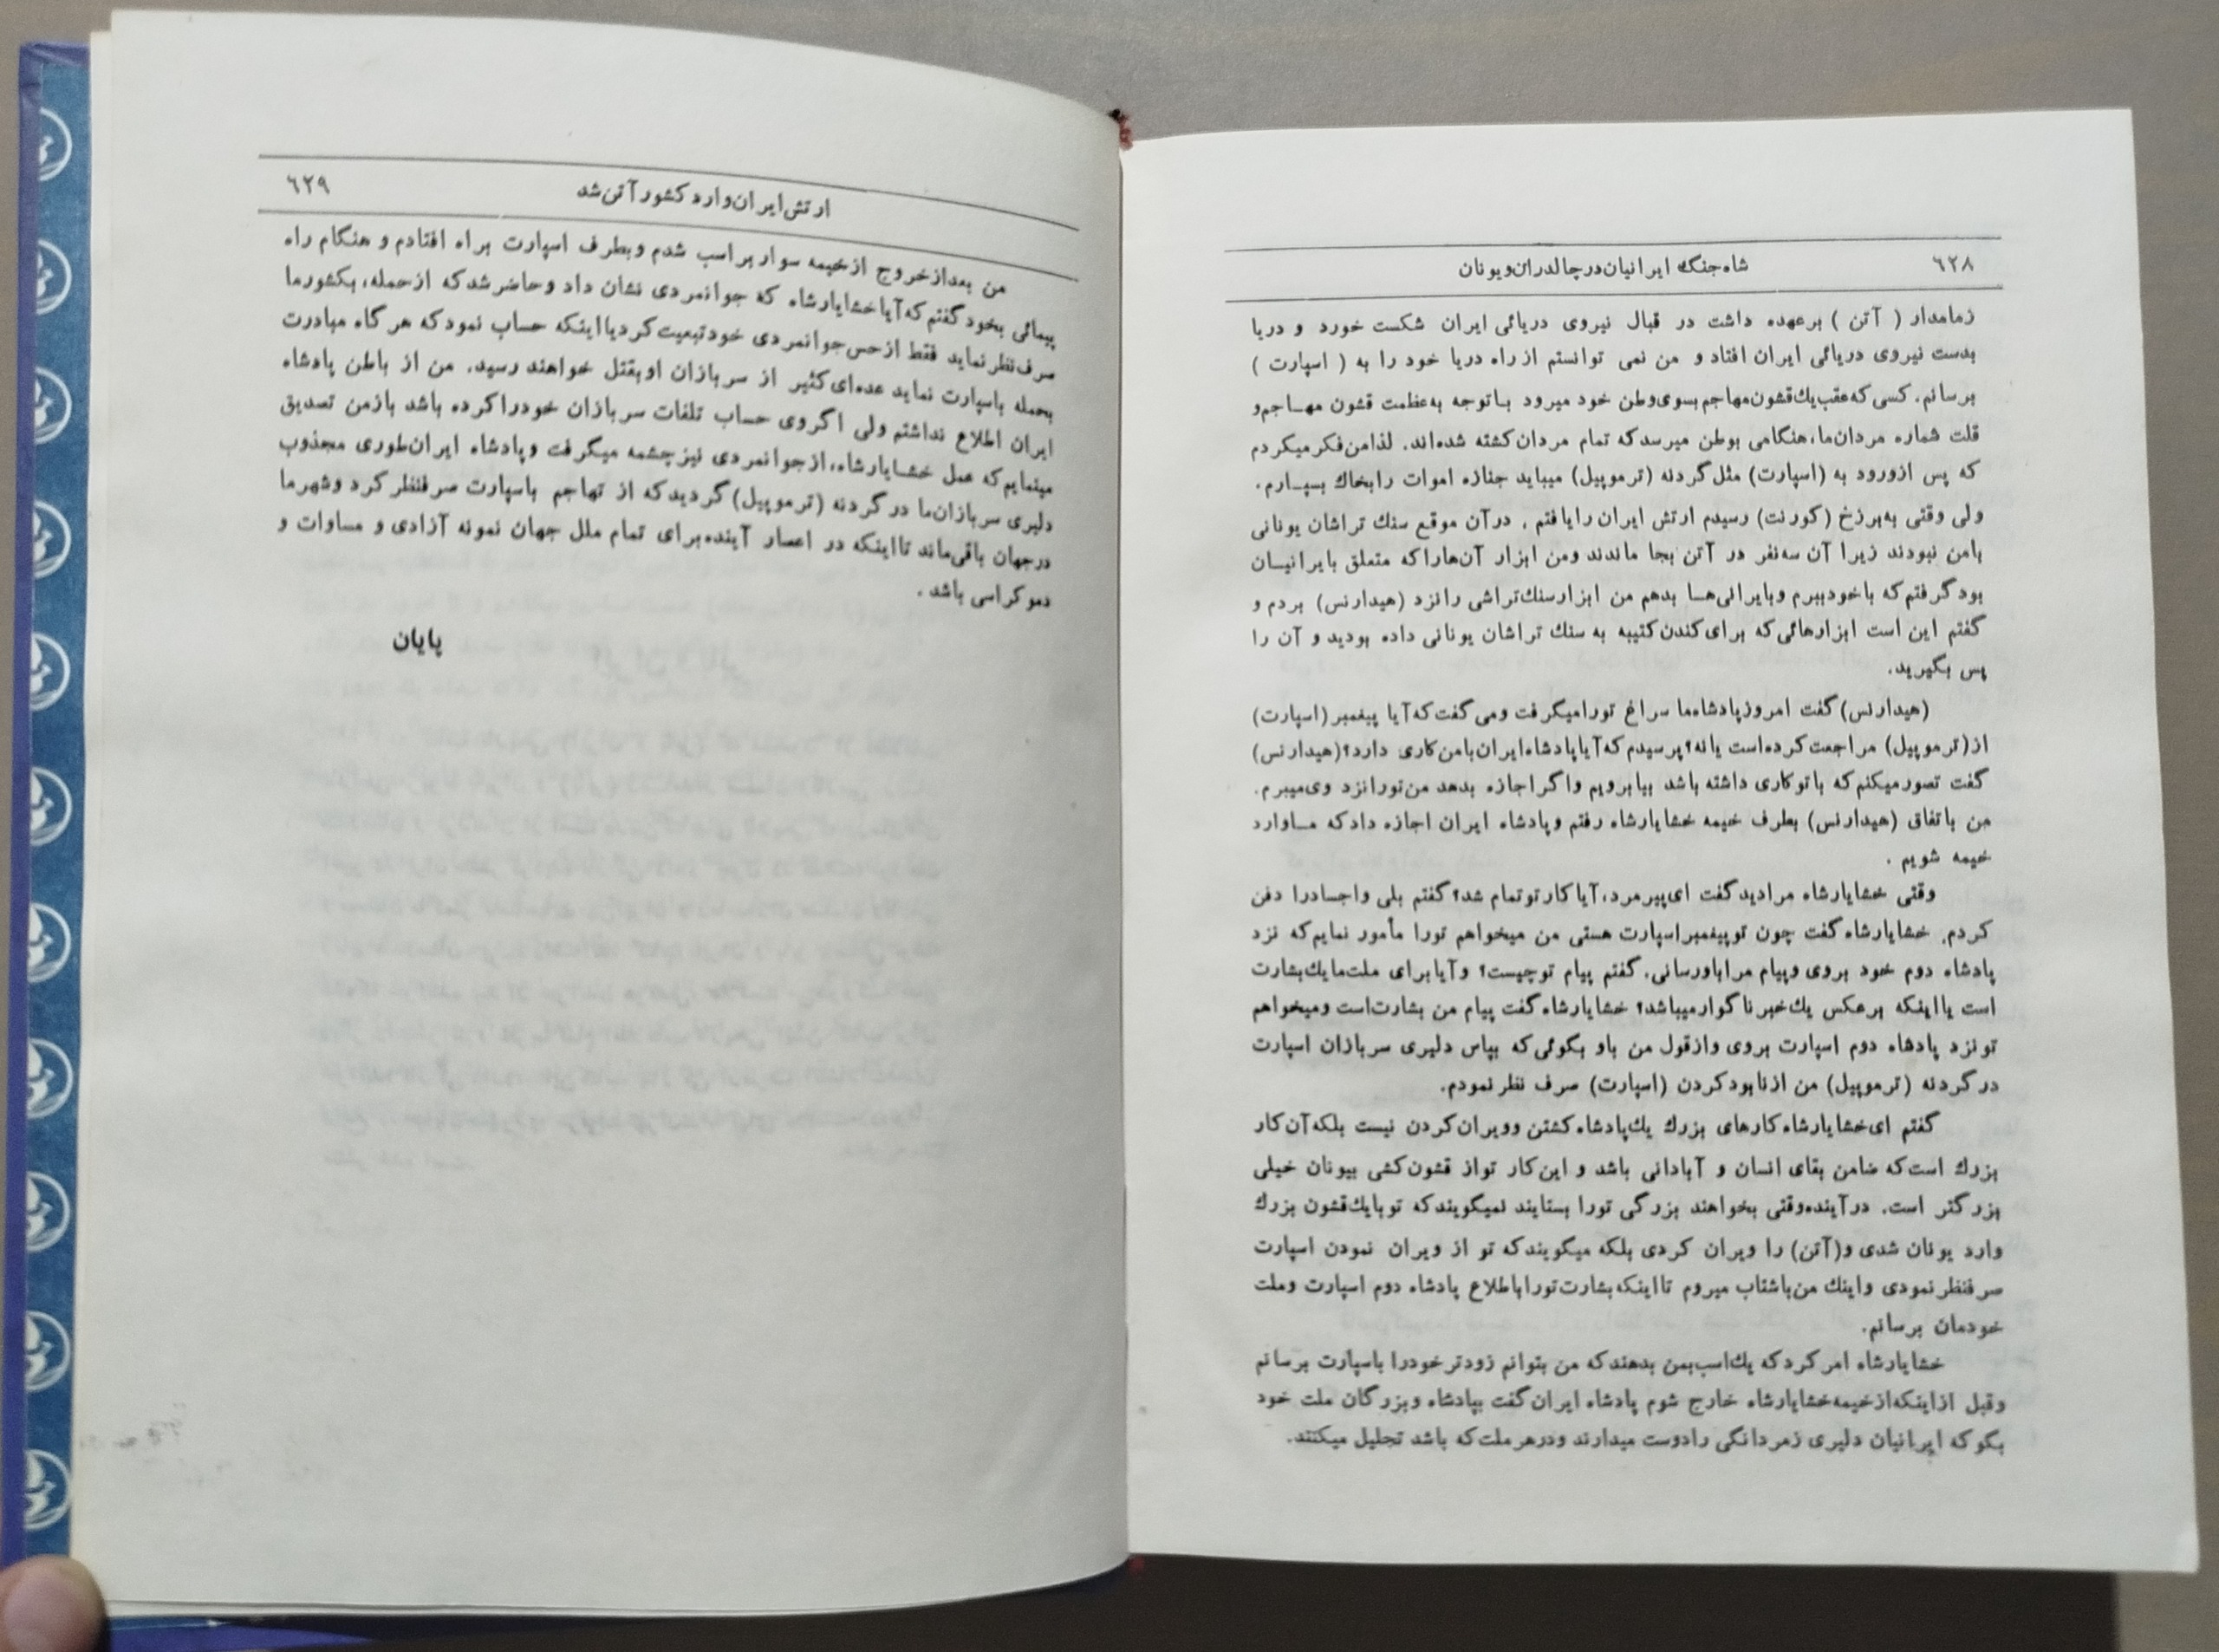 ۶۲۸
شاه جنگ ایرانیان در چالدران و یونان
زمامدار ( آتن ) برعهده داشت در قبال نیروی دریائی ایران شکست خورد و دریا
بدست نیروی دریائی ایران افتاد و من نمی توانستم از راه دریا خود را به ( اسپارت )
برسانم. کسی که عقب یك قشون مهاجم بسوی وطن خود میرود با توجه به عظمت قشون مهاجم و
قلت شماره مردان ما، هنگامی بوطن میرسد که تمام مردان کشته شده‌اند. لذا من فکر میکردم
که پس از ورود به (اسپارت) مثل گردنه (ترموپیل) میباید جنازه اموات را بخاك بسپارم.
ولی وقتی به برزخ (کورنت) رسیدم ارتش ایران را یافتم . در آن موقع سنك تراشان یونانی
بامن نبودند زیرا آن سه نفر در آتن بجا ماندند و من ابزار آن‌ها را که متعلق بایرانیان
بود گرفتم که باخود ببرم و بایرانی‌ها بدهم من ابزار سنك تراشی را نزد (هیدارنس) بردم و
گفتم این است ابزارهائی که برای کندن کتیبه به سنك تراشان یونانی داده بودید و آن را
پس بگیرید.
(هیدارنس) گفت امروز پادشاه ما سراغ تورا میگرفت و می گفت که آیا پیغمبر (اسپارت)
از (ترموپیل) مراجعت کرده است یا نه؟ پرسیدم که آیا پادشاه ایران بامن کاری دارد؟ (هیدارنس)
گفت تصور میکنم که با تو کاری داشته باشد بیا برویم و اگر اجازه بدهد من تورا نزد وی میبرم.
من باتفاق (هیدارنس) بطرف خیمه خشایارشاه رفتم و پادشاه ایران اجازه داد که ما وارد
خیمه شویم .
وقتی خشایارشاه مرا دید گفت ای پیر مرد، آیا کار تو تمام شد؟ گفتم بلی و اجساد را دفن
کردم. خشایارشاه گفت چون تو پیغمبر اسپارت هستی من میخواهم تورا مأمور نمایم که نزد
پادشاه دوم خود بروی و پیام مرا باو رسانی. گفتم پیام تو چیست؟ و آیا برای ملت ما یك بشارت
است یا اینکه برعکس یك خبر ناگوار میباشد؟ خشایارشاه گفت پیام من بشارت است و میخواهم
تو نزد پادشاه دوم اسپارت بروی و از قول من باو بگوئی که بپاس دلیری سربازان اسپارت
در گردنه (ترموپیل) من از نابود کردن (اسپارت) صرف نظر نمودم.
گفتم ای خشایارشاه کارهای بزرك یك پادشاه کشتن و ویران کردن نیست بلکه آن کار
بزرك است که ضامن بقای انسان و آبادانی باشد و این کار تو از قشون کشی بیونان خیلی
بزرگتر است. در آینده وقتی بخواهند بزرگی تورا بستایند نمیگویند که تو با یك قشون بزرك
وارد یونان شدی و (آتن) را ویران کردی بلکه میگویند که تو از ویران نمودن اسپارت
صرفنظر نمودی و اینك من باشتاب میروم تا اینکه بشارت تورا باطلاع پادشاه دوم اسپارت و ملت
خودمان برسانم.
خشایارشاه امر کرد که یك اسب بمن بدهند که من بتوانم زودتر خود را باسپارت برسانم
و قبل از اینکه از خیمه خشایارشاه خارج شوم پادشاه ایران گفت بپادشاه و بزرگان ملت خود
بگو که ایرانیان دلیری زمردانگی را دوست میدارند و در هر ملت که باشد تجلیل میکنند.
ارتش ایران وارد کشور آتن شد
۶۲۹
من بعد از خروج از خیمه سوار بر اسب شدم و بطرف اسپارت براه افتادم و هنگام راه
پیمائی بخود گفتم که آیا خشایارشاه که جوانمردی نشان داد و حاضر شد که از حمله، بکشور ما
صرف نظر نماید فقط از حس جوانمردی خود تبعیت کرد یا اینکه حساب نمود که هر گاه مبادرت
بحمله باسپارت نماید عده‌ای کثیر از سربازان او بقتل خواهند رسید. من از باطن پادشاه
ایران اطلاع نداشتم ولی اگر وی حساب تلفات سربازان خود را کرده باشد باز من تصدیق
مینمایم که عمل خشایارشاه، از جوانمردی نیز چشمه میگرفت و پادشاه ایران طوری مجذوب
دلیری سربازان ما در گردنه (ترموپیل) گردید که از تهاجم باسپارت صرفنظر کرد و شهر ما
در جهان باقی ماند تا اینکه در اعصار آینده برای تمام ملل جهان نمونه آزادی و مساوات و
دموکراسی باشد .
پایان